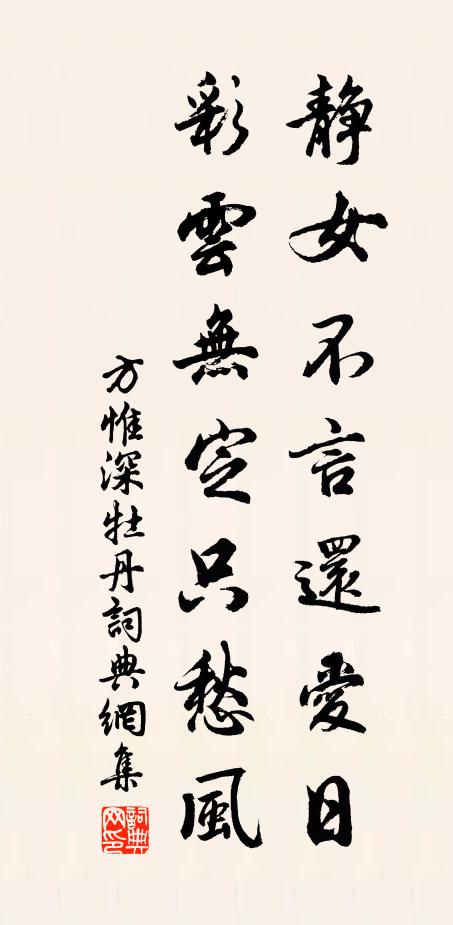 靜女不言還愛日
彩雲無定只愁風
方惟深牡丹詞典網集
詞典網印